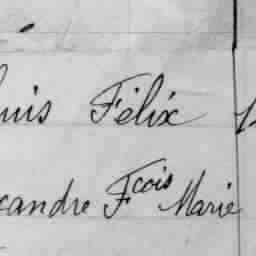 uis Félix
xandre Fcois Marie